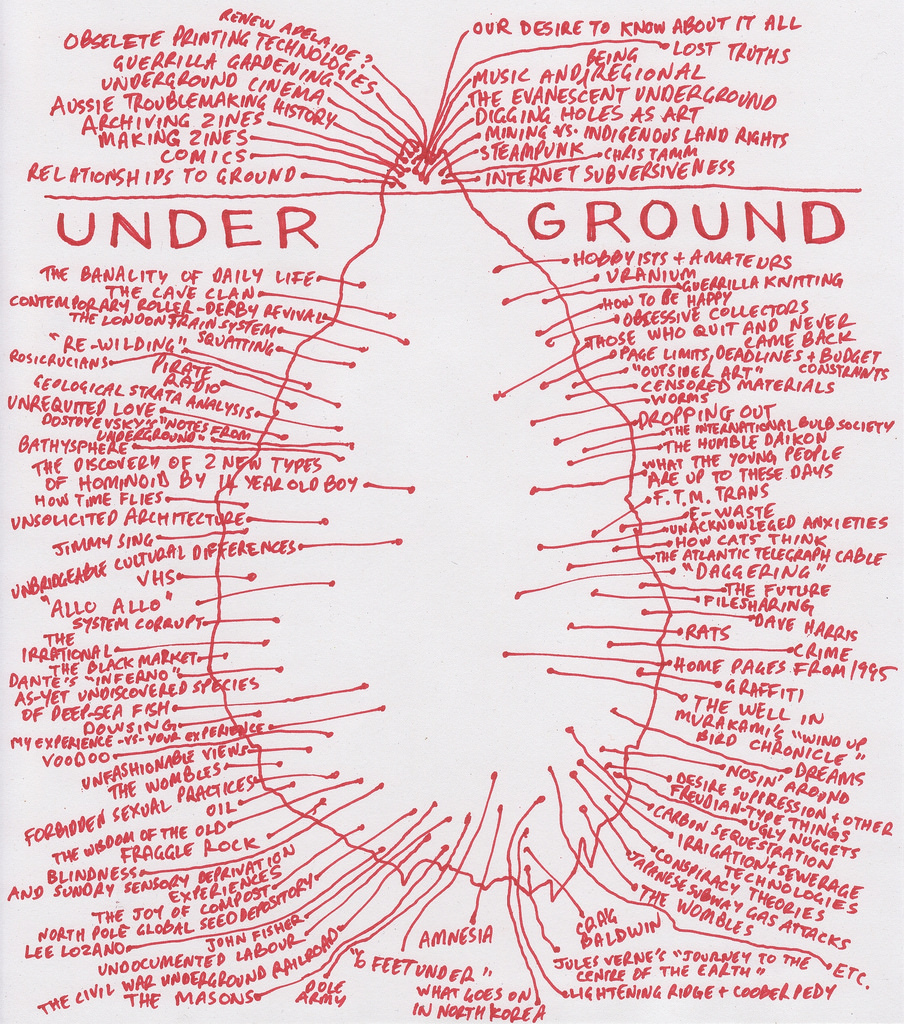 RENEW ADELAIDE?
OBSELETE PRINTING TECHNOLOGIES
GUERRILLA GARDENING
UNDERGROUND CINEMA
AUSSIE TROUBLEMAKING HISTORY
ARCHIVING ZINES
MAKING ZINES
COMICS
RELATIONSHIPS TO GROUND
OUR DESIRE TO KNOW ABOUT IT ALL
LOST TRUTHS
BEING
MUSIC AND/REGIONAL
THE EVANESCENT UNDERGROUND
DIGGING HOLES AS ART
MINING vs. INDIGENOUS LAND RIGHTS
STEAMPUNK
CHRIS TAMM
INTERNET SUBVERSIVENESS
UNDER GROUND
THE BANALITY OF DAILY LIFE
THE CAVE CLAN
CONTEMPORARY ROLLER-DERBY REVIVAL
THE LONDON TRAIN SYSTEM
SQUATTING
"RE-WILDING"
ROSICRUCIANS
PIRATE
RADIO
GEOLOGICAL STRATA ANALYSIS
UNREQUITED LOVE
DOSTOYEVSKY'S "NOTES FROM
UNDERGROUND"
BATHYSPHERE
THE DISCOVERY OF 2 NEW TYPES
OF HOMINOID BY 14 YEAR OLD BOY
HOW TIME FLIES
UNSOLICITED ARCHITECTURE
JIMMY SING
UNBRIDGEABLE CULTURAL DIFFERENCES
VHS
"ALLO ALLO"
SYSTEM CORRUPT
THE
IRRATIONAL
THE BLACK MARKET
DANTE'S "INFERNO"
AS-YET UNDISCOVERED SPECIES
OF DEEP-SEA FISH
DOWSING
MY EXPERIENCE -VS- YOUR EXPERIENCE
VOODOO
UNFASHIONABLE VIEWS
THE WOMBLES
FORBIDDEN SEXUAL PRACTICES
OIL
THE WISDOM OF THE OLD
FRAGGLE ROCK
BLINDNESS
AND SUNDRY SENSORY DEPRIVATION
EXPERIENCES
THE JOY OF COMPOST
NORTH POLE GLOBAL SEED DEPOSITORY
LEE LOZANO
JOHN FISHER
UNDOCUMENTED LABOUR
THE CIVIL WAR UNDERGROUND RAILROAD
THE MASONS
DOLE
ARMY
"6 FEET UNDER"
AMNESIA
WHAT GOES ON
IN NORTH KOREA
HOBBYISTS + AMATEURS
URANIUM
GUERRILLA KNITTING
HOW TO BE HAPPY
OBSESSIVE COLLECTORS
THOSE WHO QUIT AND NEVER
CAME BACK
PAGE LIMITS, DEADLINES + BUDGET
CONSTRAINTS
"OUTSIDER ART"
CENSORED MATERIALS
WORMS
DROPPING OUT
THE INTERNATIONAL BULB SOCIETY
THE HUMBLE DAIKON
WHAT THE YOUNG PEOPLE
ARE UP TO THESE DAYS
F.T.M. TRANS
E-WASTE
UNACKNOWLEGED ANXIETIES
HOW CATS THINK
THE ATLANTIC TELEGRAPH CABLE
"DAGGERING"
THE FUTURE
FILESHARING
DAVE HARRIS
RATS
CRIME
HOME PAGES FROM 1995
GRAFFITI
THE WELL IN
MURAKAMI'S "WIND UP
BIRD CHRONICLE"
DREAMS
NOSIN' AROUND
DESIRE SUPPRESSION + OTHER
FREUDIAN-TYPE THINGS
UGLY NUGGETS
CARBON SEQUESTRATION
IRRIGATION + SEWERAGE
TECHNOLOGIES
CONSPIRACY THEORIES
JAPANESE SUBWAY GAS ATTACKS
THE WOMBLES
ETC.
CRAIG
BALDWIN
JULES VERNE'S "JOURNEY TO THE
CENTRE OF THE EARTH"
LIGHTENING RIDGE + COOBER PEDY